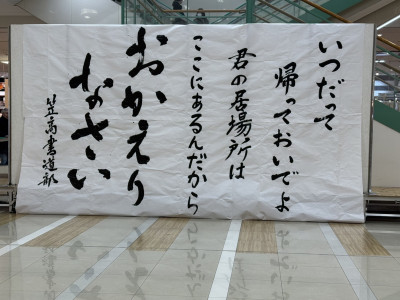 いつだって
帰っておいでよ
君の居場所は
ここにあるんだから
おかえり
なさい
笠高書道部